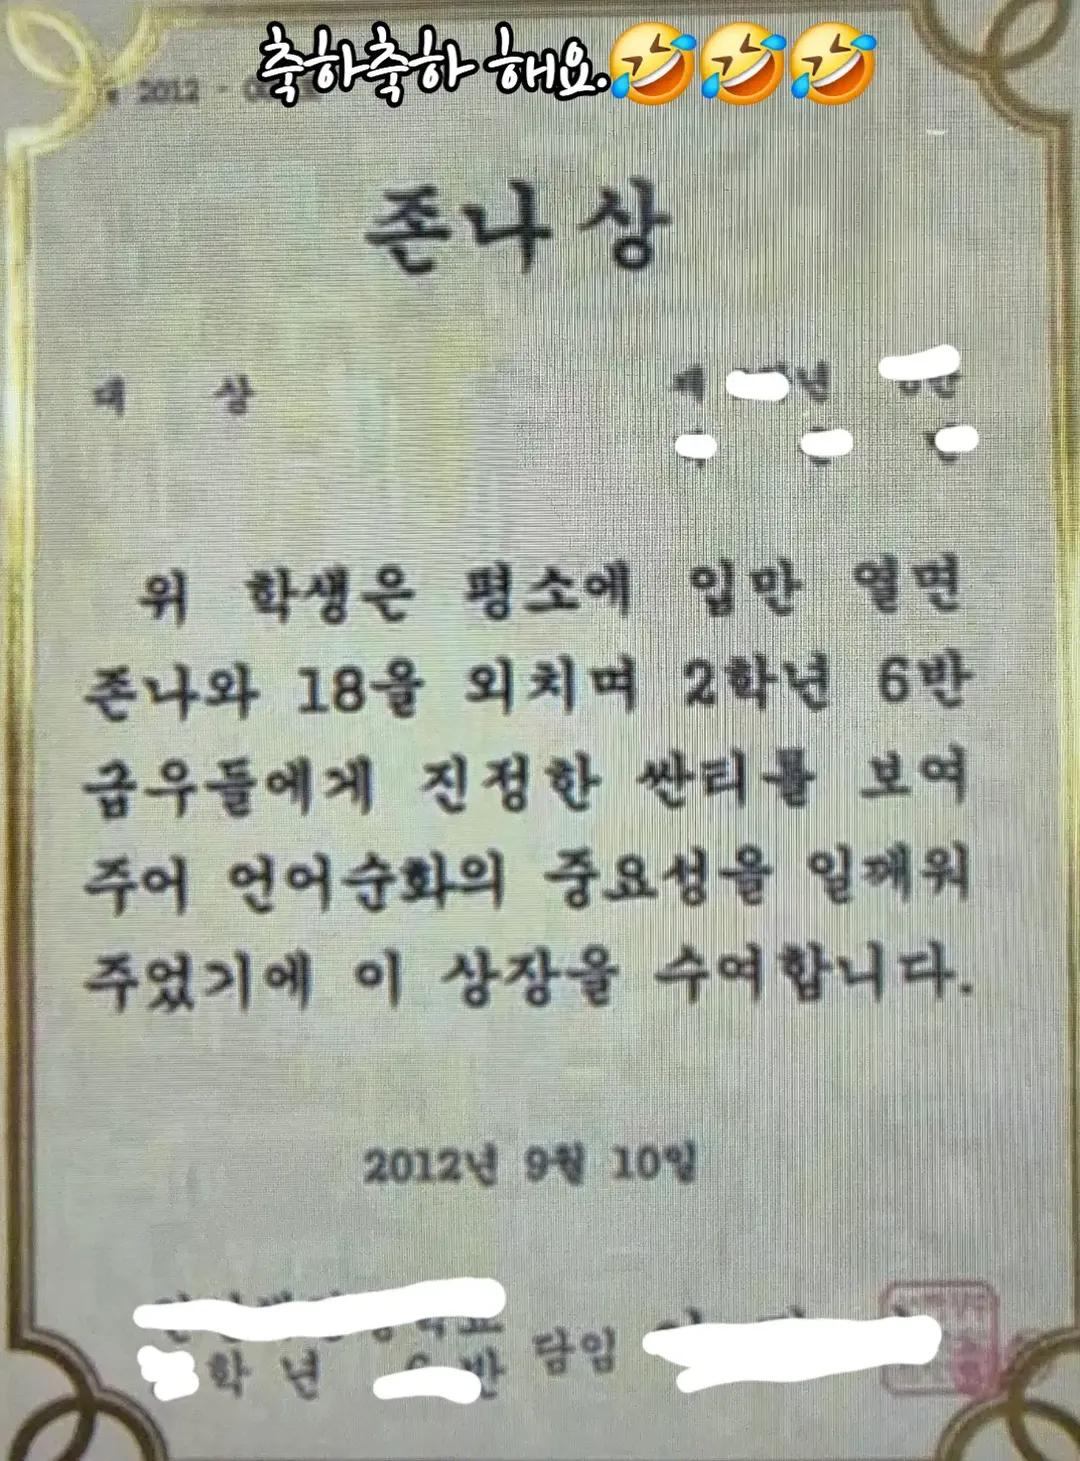 축하축하 해요.🤣🤣🤣
2012
존나상
대 상
위 학생은 평소에 입만 열면
존나와 18을 외치며 2학년 6반
급우들에게 진정한 싼티를 보여
주어 언어순화의 중요성을 일깨워
주었기에 이 상장을 수여합니다.
2012년 9월 10일
학년 반 담임